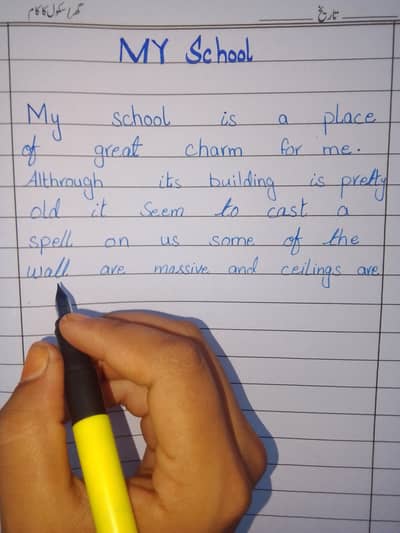 گھر / سکول کا کام
تاریخ
MY School
My school is a place
of great charm for me.
Althrough its building is pretty
old it seem to cast a
spell on us some of the
wall are massive and ceilings are